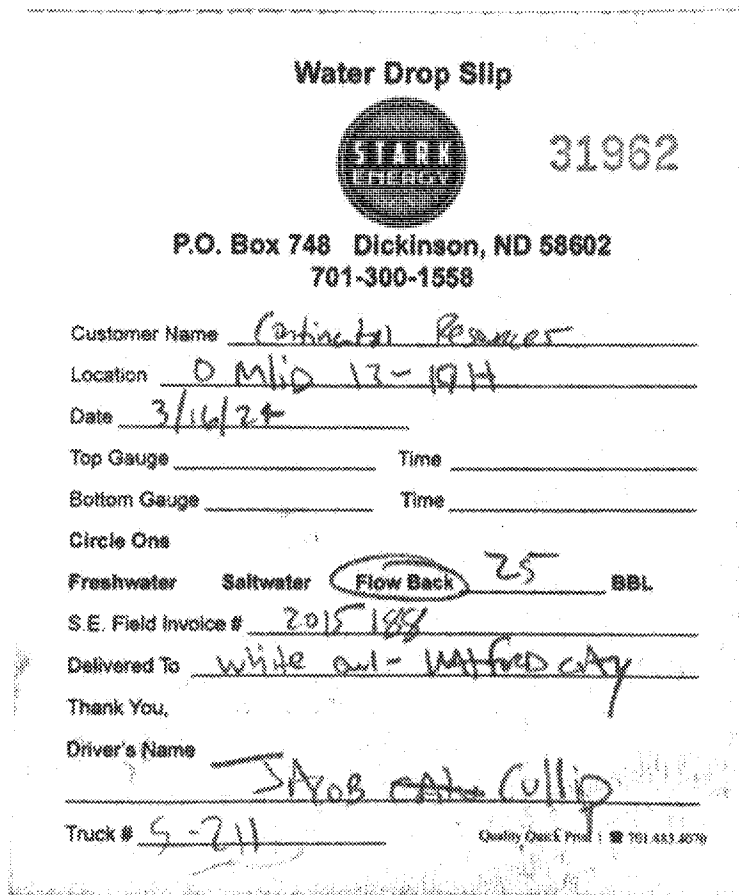 Water Drop Slip
STARK
ENERGY
31962
P.O. Box 748 Dickinson, ND 58602
701-300-1558
Customer Name Continental Resources
Location O Mlid 13-19H
Date 3/16/24
Top Gauge Time
Bottom Gauge Time
Circle One
Freshwater Saltwater Flow Back 25 BBL
S.E. Field Invoice # 2015188
Delivered To White owl - Watford city
Thank You,
Driver's Name
Jacob Cullip
Truck # S-211
Quality Quick Print